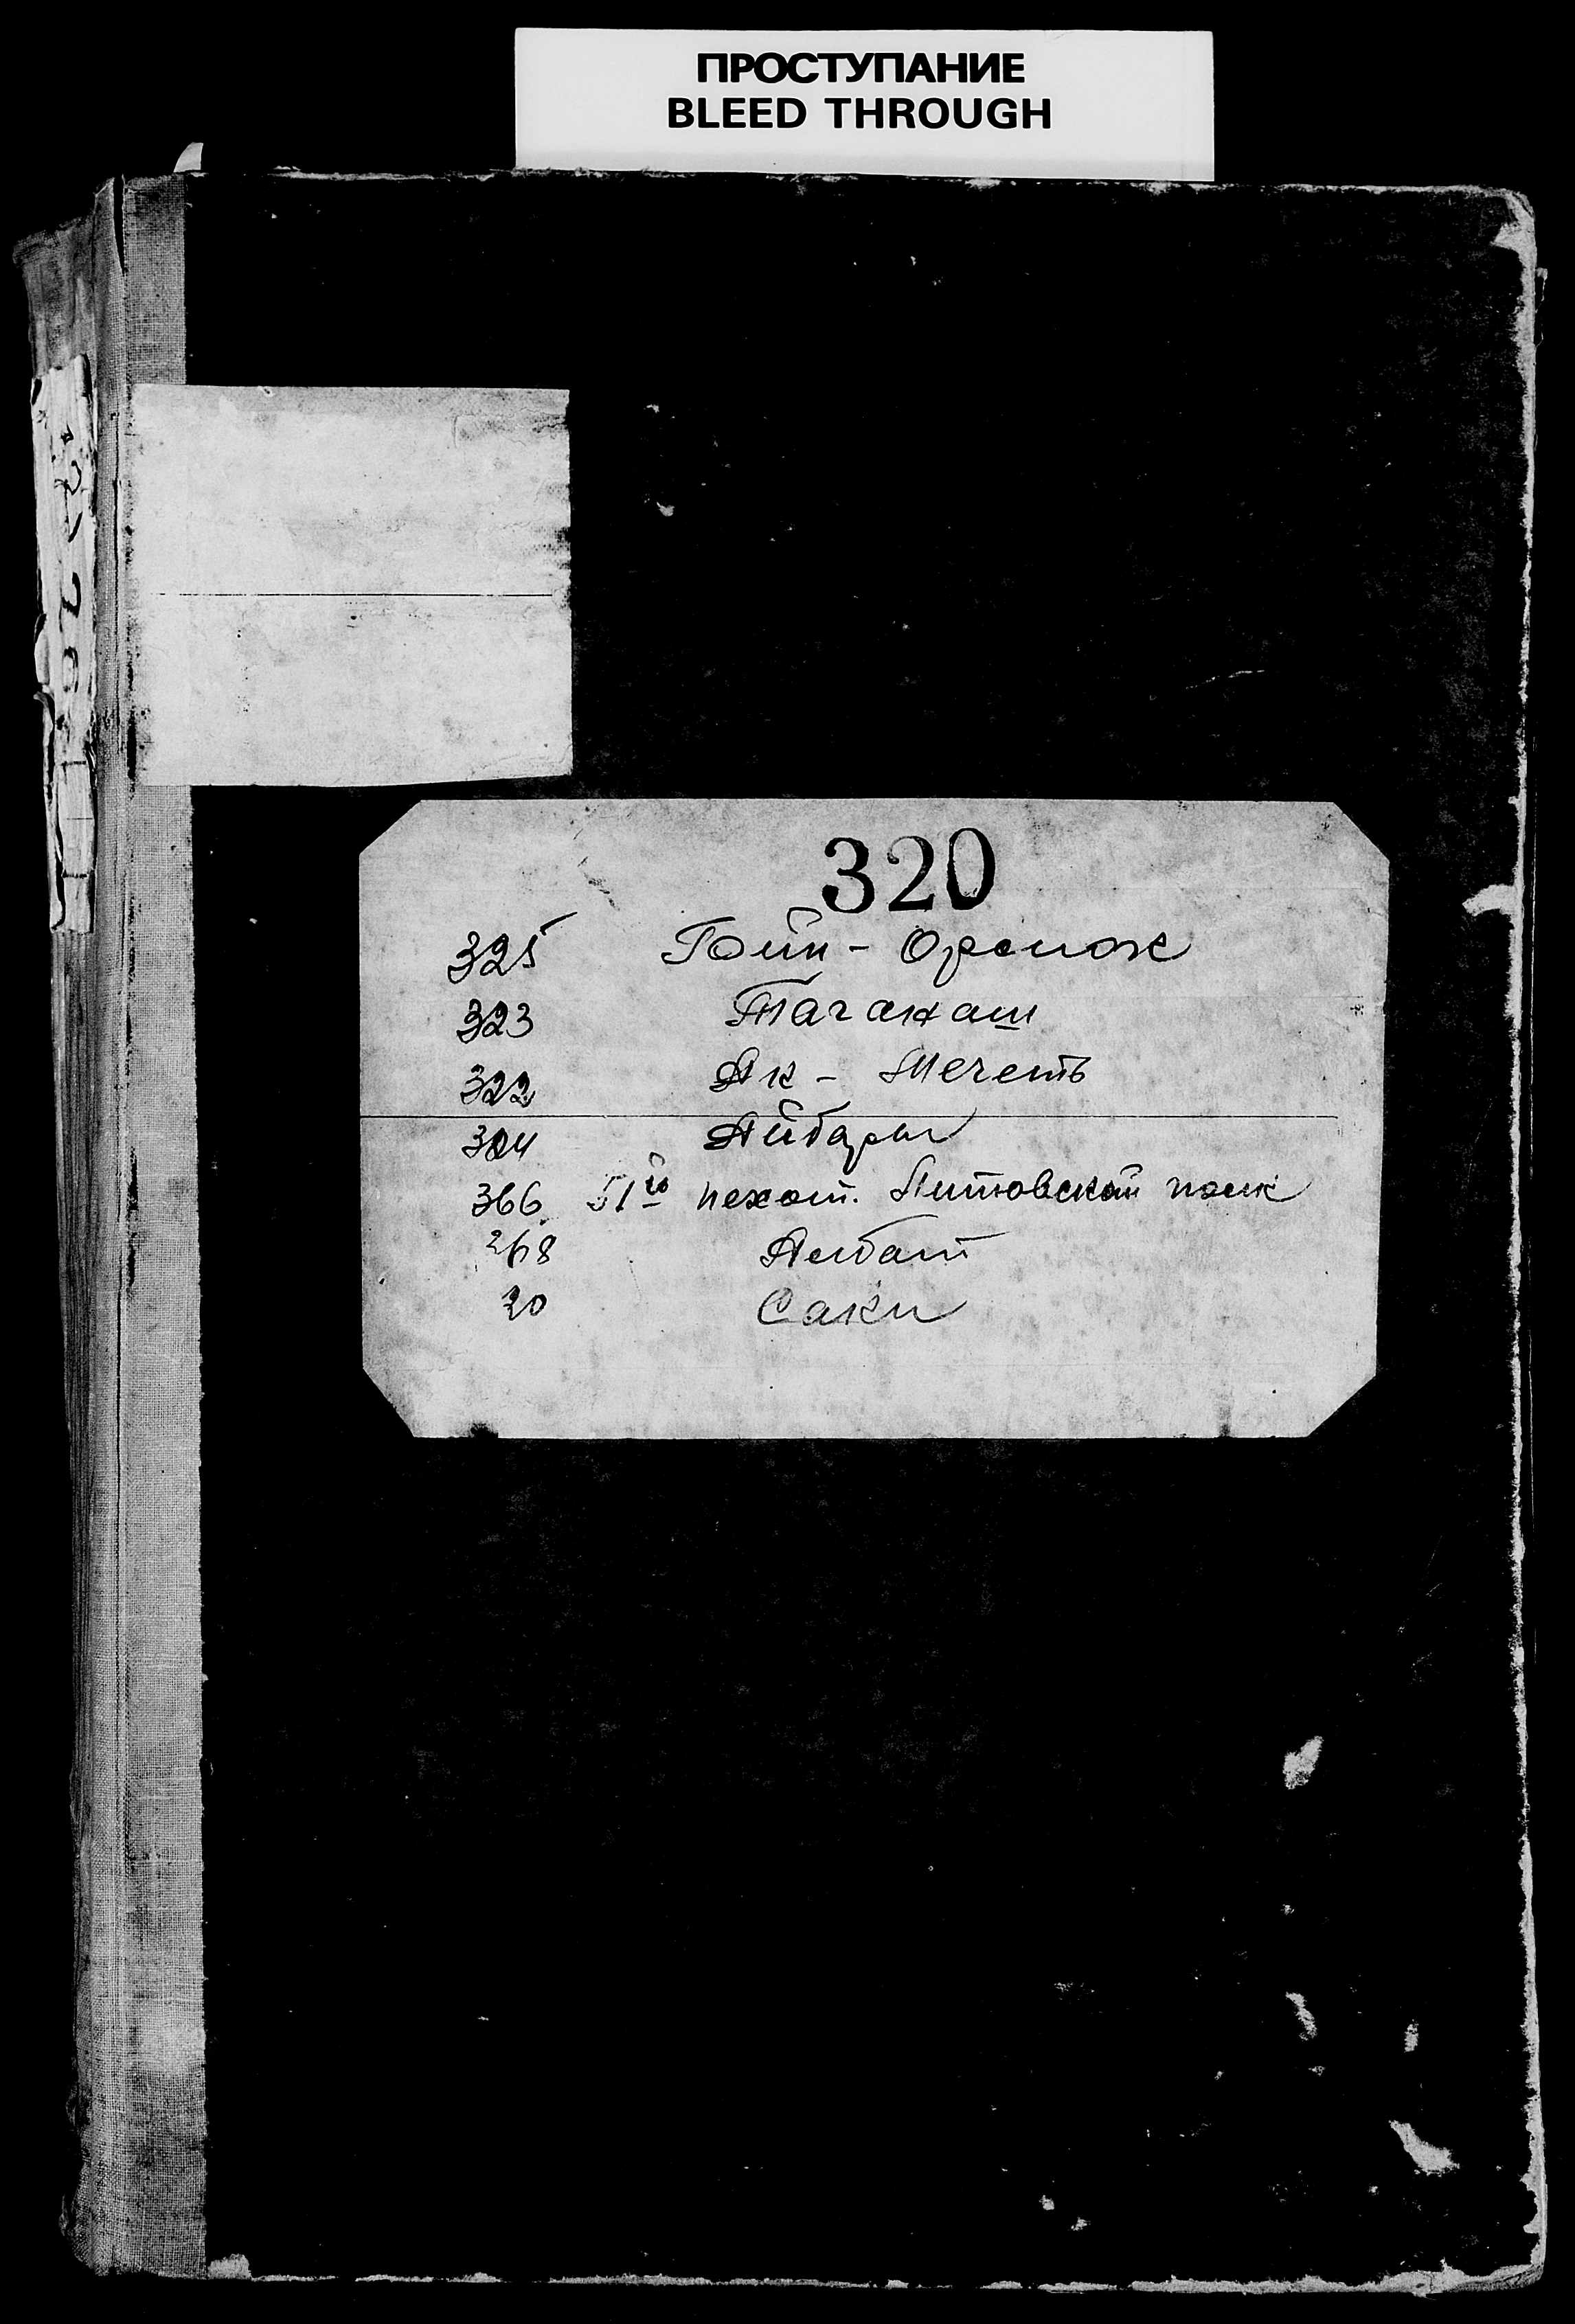 ПРОСТУПАНИЕ
BLEED THROUGH
320
325 Бий-Орлюк
323 Таганаш
322 Ак-Мечеть
324 Айбары
366 51й пехот. Литовский полк
268 Албат
20 Саки